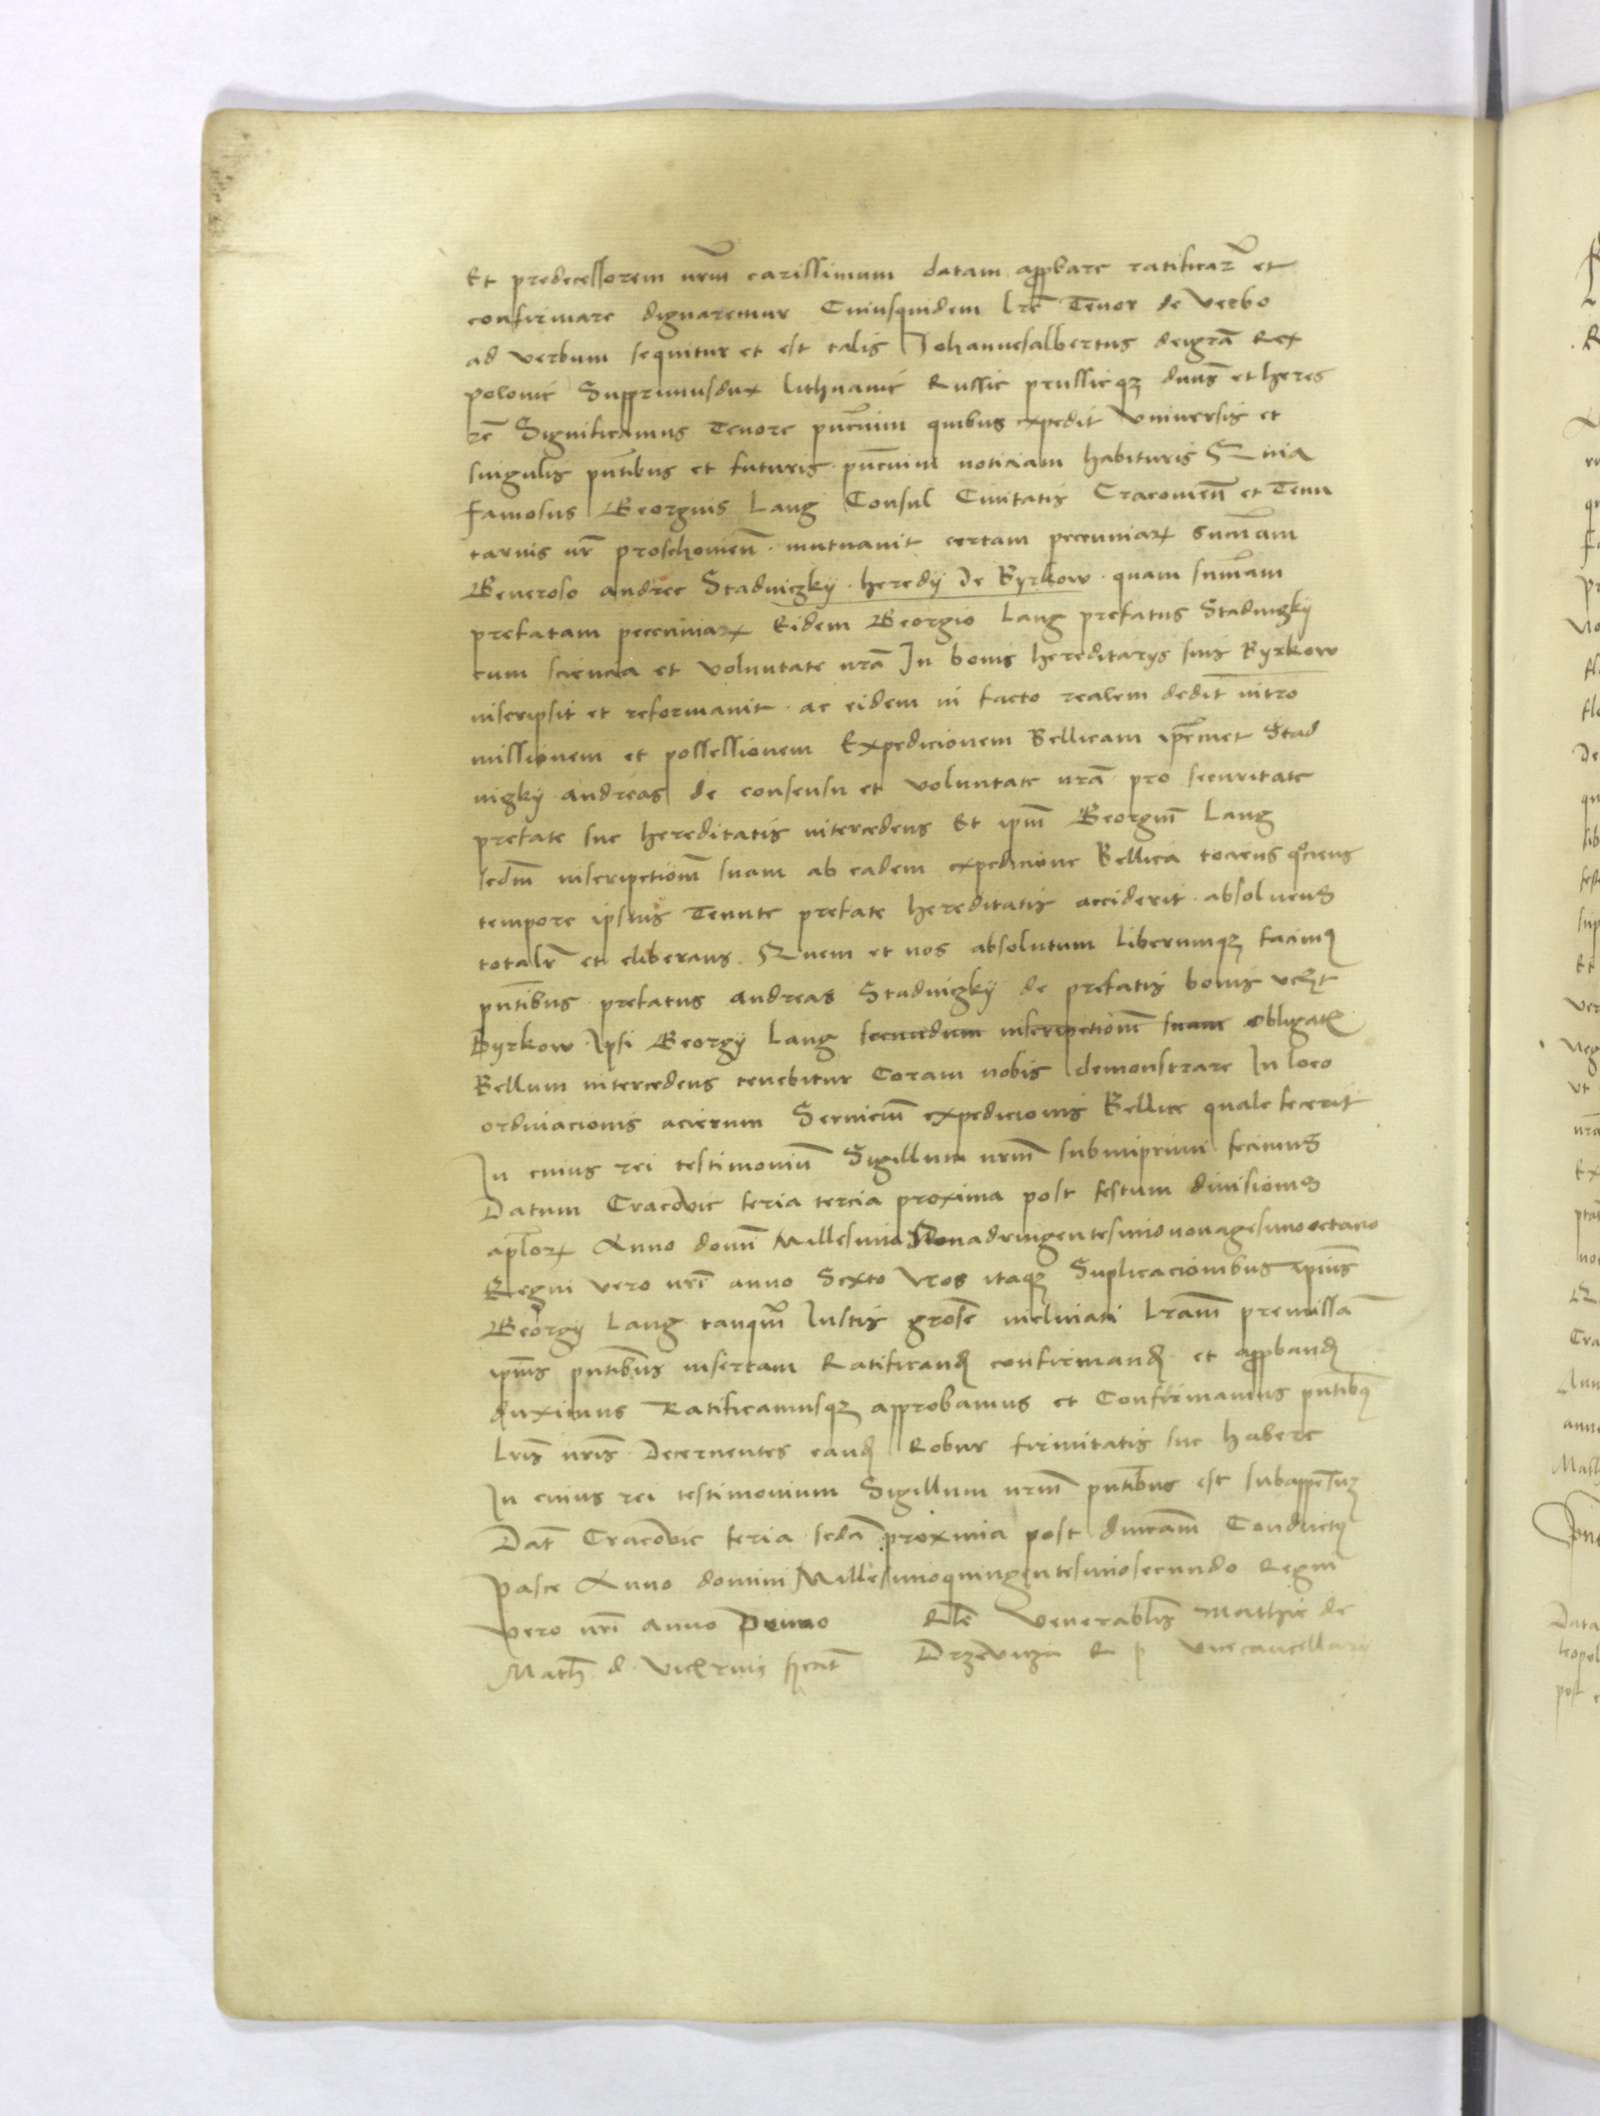 Et predecessorem nrm̄ carissimum datam approbare ratificar̄ et
confirmare dignaremur Cuiusquidem lrē Tenor de verbo
ad verbum sequitur et est talis Johannesalbertus deigrā Rex
polonie Supprimusdux lithuanie Russie prussieqꝫ dnūs et heres
rē Significamus Tenore pn̄cium quibus expedit Universis et
singulis pn̄tibus et futuris pn̄cium noticiam habituris Quia
famosus Georgius Lang Consul Civitatis Cracovien̄ et Tenu
tarius nr̄ proschovien̄ mutuavit certam pecuniarꝝ sum̄am
Generoso andree Stadniczky heredy de Byrkow quam sum̄am
prefatam pecuniarꝝ Eidem Georgio Lang prefatus Stadnigky
cum sciencia et voluntate nrā In bonis hereditarys suis Byrkow
inscripsit et reformavit ac eidem in facto realem dedit intro
missionem et possessionem Expedicionem Bellicam ipsemet Stad
nigky andreas de consensu et voluntate nrā pro securitate
prefate sue hereditatis intercedens Et ipm̄ Georgiū Lang
sedm̄ inscriptionē suam ab eadem expedicione Bellica tociens qociens
tempore ipsius Tenute prefate hereditatis acciderit absolvens
totalr̄ et eliberans Quem et nos absolutum liberumqꝫ facimꝰ
pn̄tibus prefatus andreas Stadniczky de prefatis bonis
Byrkow Ipsi Georgy Lang secundum inscriptionē suam obligatis
Bellum intercedens tenebitur Coram nobis demonstrare In loco
ordinacionis acierum Serviciū expedicionis Bellice quale fecerit
In cuius rei testimoniū Sigillum nrm̄ subimprimi fecimus
Datum Cracovie feria tercia proxima post festum divisionis
aplorꝝ Anno dom̄ Millesimo Quadringentesimononagesimooctavo
Regni vero nrī anno Sexto Nos itaqꝫ Suplicacionibus ipius
Georgy Lang tanqm̄ Iustis inclinati Lram̄ premissā
ipius pn̄tibus insertam Ratificand confirmand et approband
duximus Ratificamusqꝫ approbamus et Confirmamus pn̄tibꝰ
Lris̄ nris̄ Decernentes eand Robur firmitatis sue habere
In cuius rei testimonium Sigillum nrm̄ pn̄tibus est subappensuꝫ
Dat̄ Cracovie feria sedā proxima post dnicam̄ Conductꝰ
pasce Anno domini Millesimoquingentesimosecundo Regni
vero nrī anno Primo Rlē Venerabilis Mathie de
Drzewicza R p vicecancellary